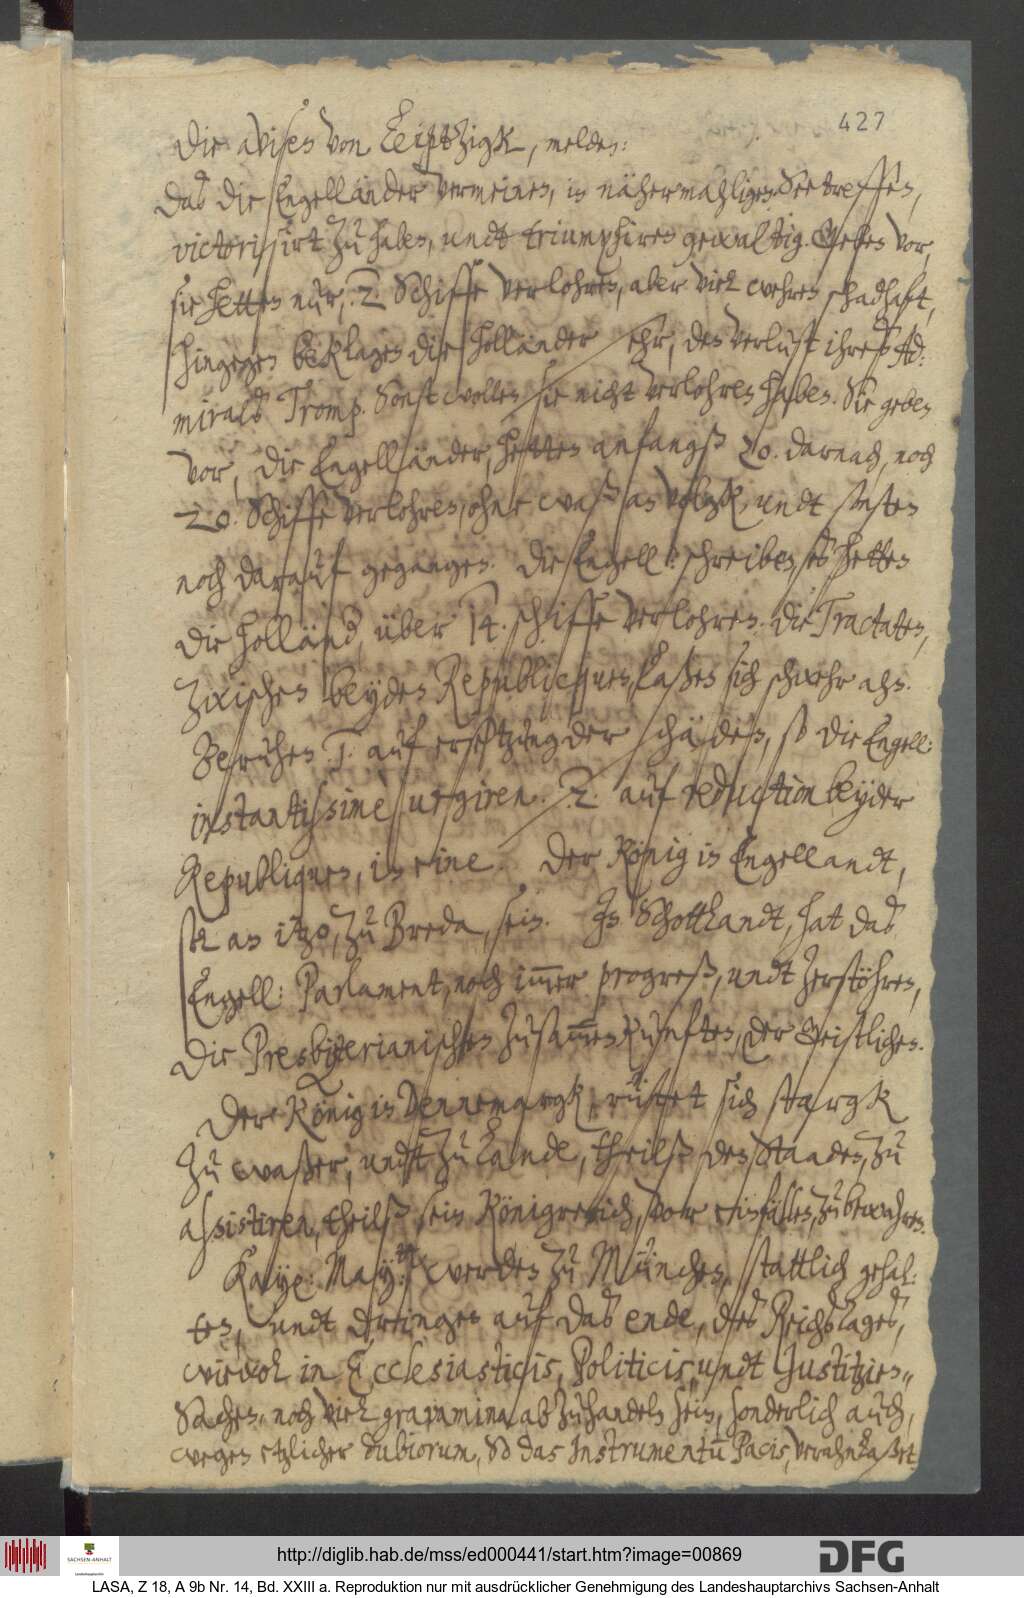 427
Die avisen von Leiptzigk, melden:
Das die Engelländer vermeinen, in nähermahligen Seetreffen,
victorisirt zu haben, undt triumphiren gewaltig. Geben vor,
sie hetten nur, 2. Schiffe verlohren, aber viel wehren schadhaft,
hingegen beklagen die Holländer sehr, den verlust ihreß Ad:
mirals Tromp. Sonst wollen sie nicht verlohren haben. Sie geben
vor, die Engelländer, hetten anfangß 20. darnach, noch
20. Schiffe verlohren, ohne waß an Volgk, undt sonsten
noch darauf gegangen. Die Engell: schreiben, es hetten
die Holländ, über 14. schiffe verlohren. Die Tractatten,
zwischen beyden Republicquen, laßen sich schwehr ahn.
Beruhen 1. auf ersetzung der schäden, so die Engell:
instantissimè urgiren. 2. auf reduction beyder
Republiquen, in eine. Der König in Engellandt,
sol an itzo, zu Breda, sein. In Schottlandt, hat das
Engell: Parlament, noch immer progreß, undt zerstöhren,
die Presbyterianischen Zusammenkunften, der Geistlichen.
Der König in Dennemargk, rüstet sich stargk
zu waßer, undt zu Lande, theilß den Staaden, zu
assistiren, theilß sein Königreich, vor einfällen, zu bewahren.
Kaye: May:tt werden zu München, stattlich gehal:
ten, undt dringen auf das ende, des Reichstages,
wiewol in Ecclesiasticis, Politicis, undt Justitzien-
Sachen, noch viel gravamina abzuhandeln sein, sonderlich auch,
wegen etzlicher dubiorum, so das Instrumentum Pacis, verahnlaßet.
http://diglib.hab.de/mss/ed000441/start.htm?image=00869
SACHSEN-ANHALT
DFG
LASA, Z 18, A 9b Nr. 14, Bd. XXIII a. Reproduktion nur mit ausdrücklicher Genehmigung des Landeshauptarchivs Sachsen-Anhalt